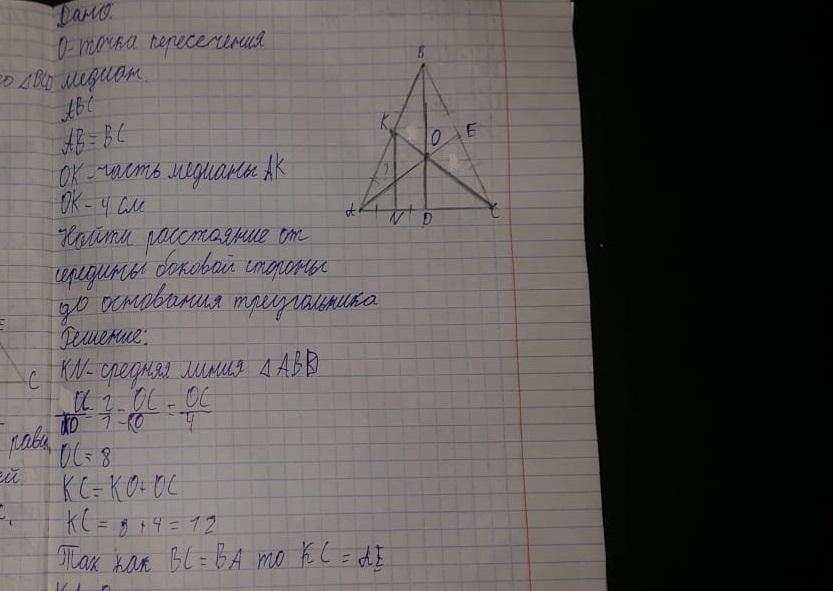 Дано:
О-точка пересечения
медиан.
ABC
AB = BC
OK - часть медианы AK
OK - 4 см
Найти расстояние от
середины боковой стороны
до основания треугольника
Решение:
KN - средняя линия △ABD
OC/KO = 2/1 = OC/KO = OC/4
OC = 8
KC = KO + OC
KC = 8 + 4 = 12
Так как BC = BA то KC = AE
B
K
O
E
A
N
D
C
△BCD
C
равн
ей